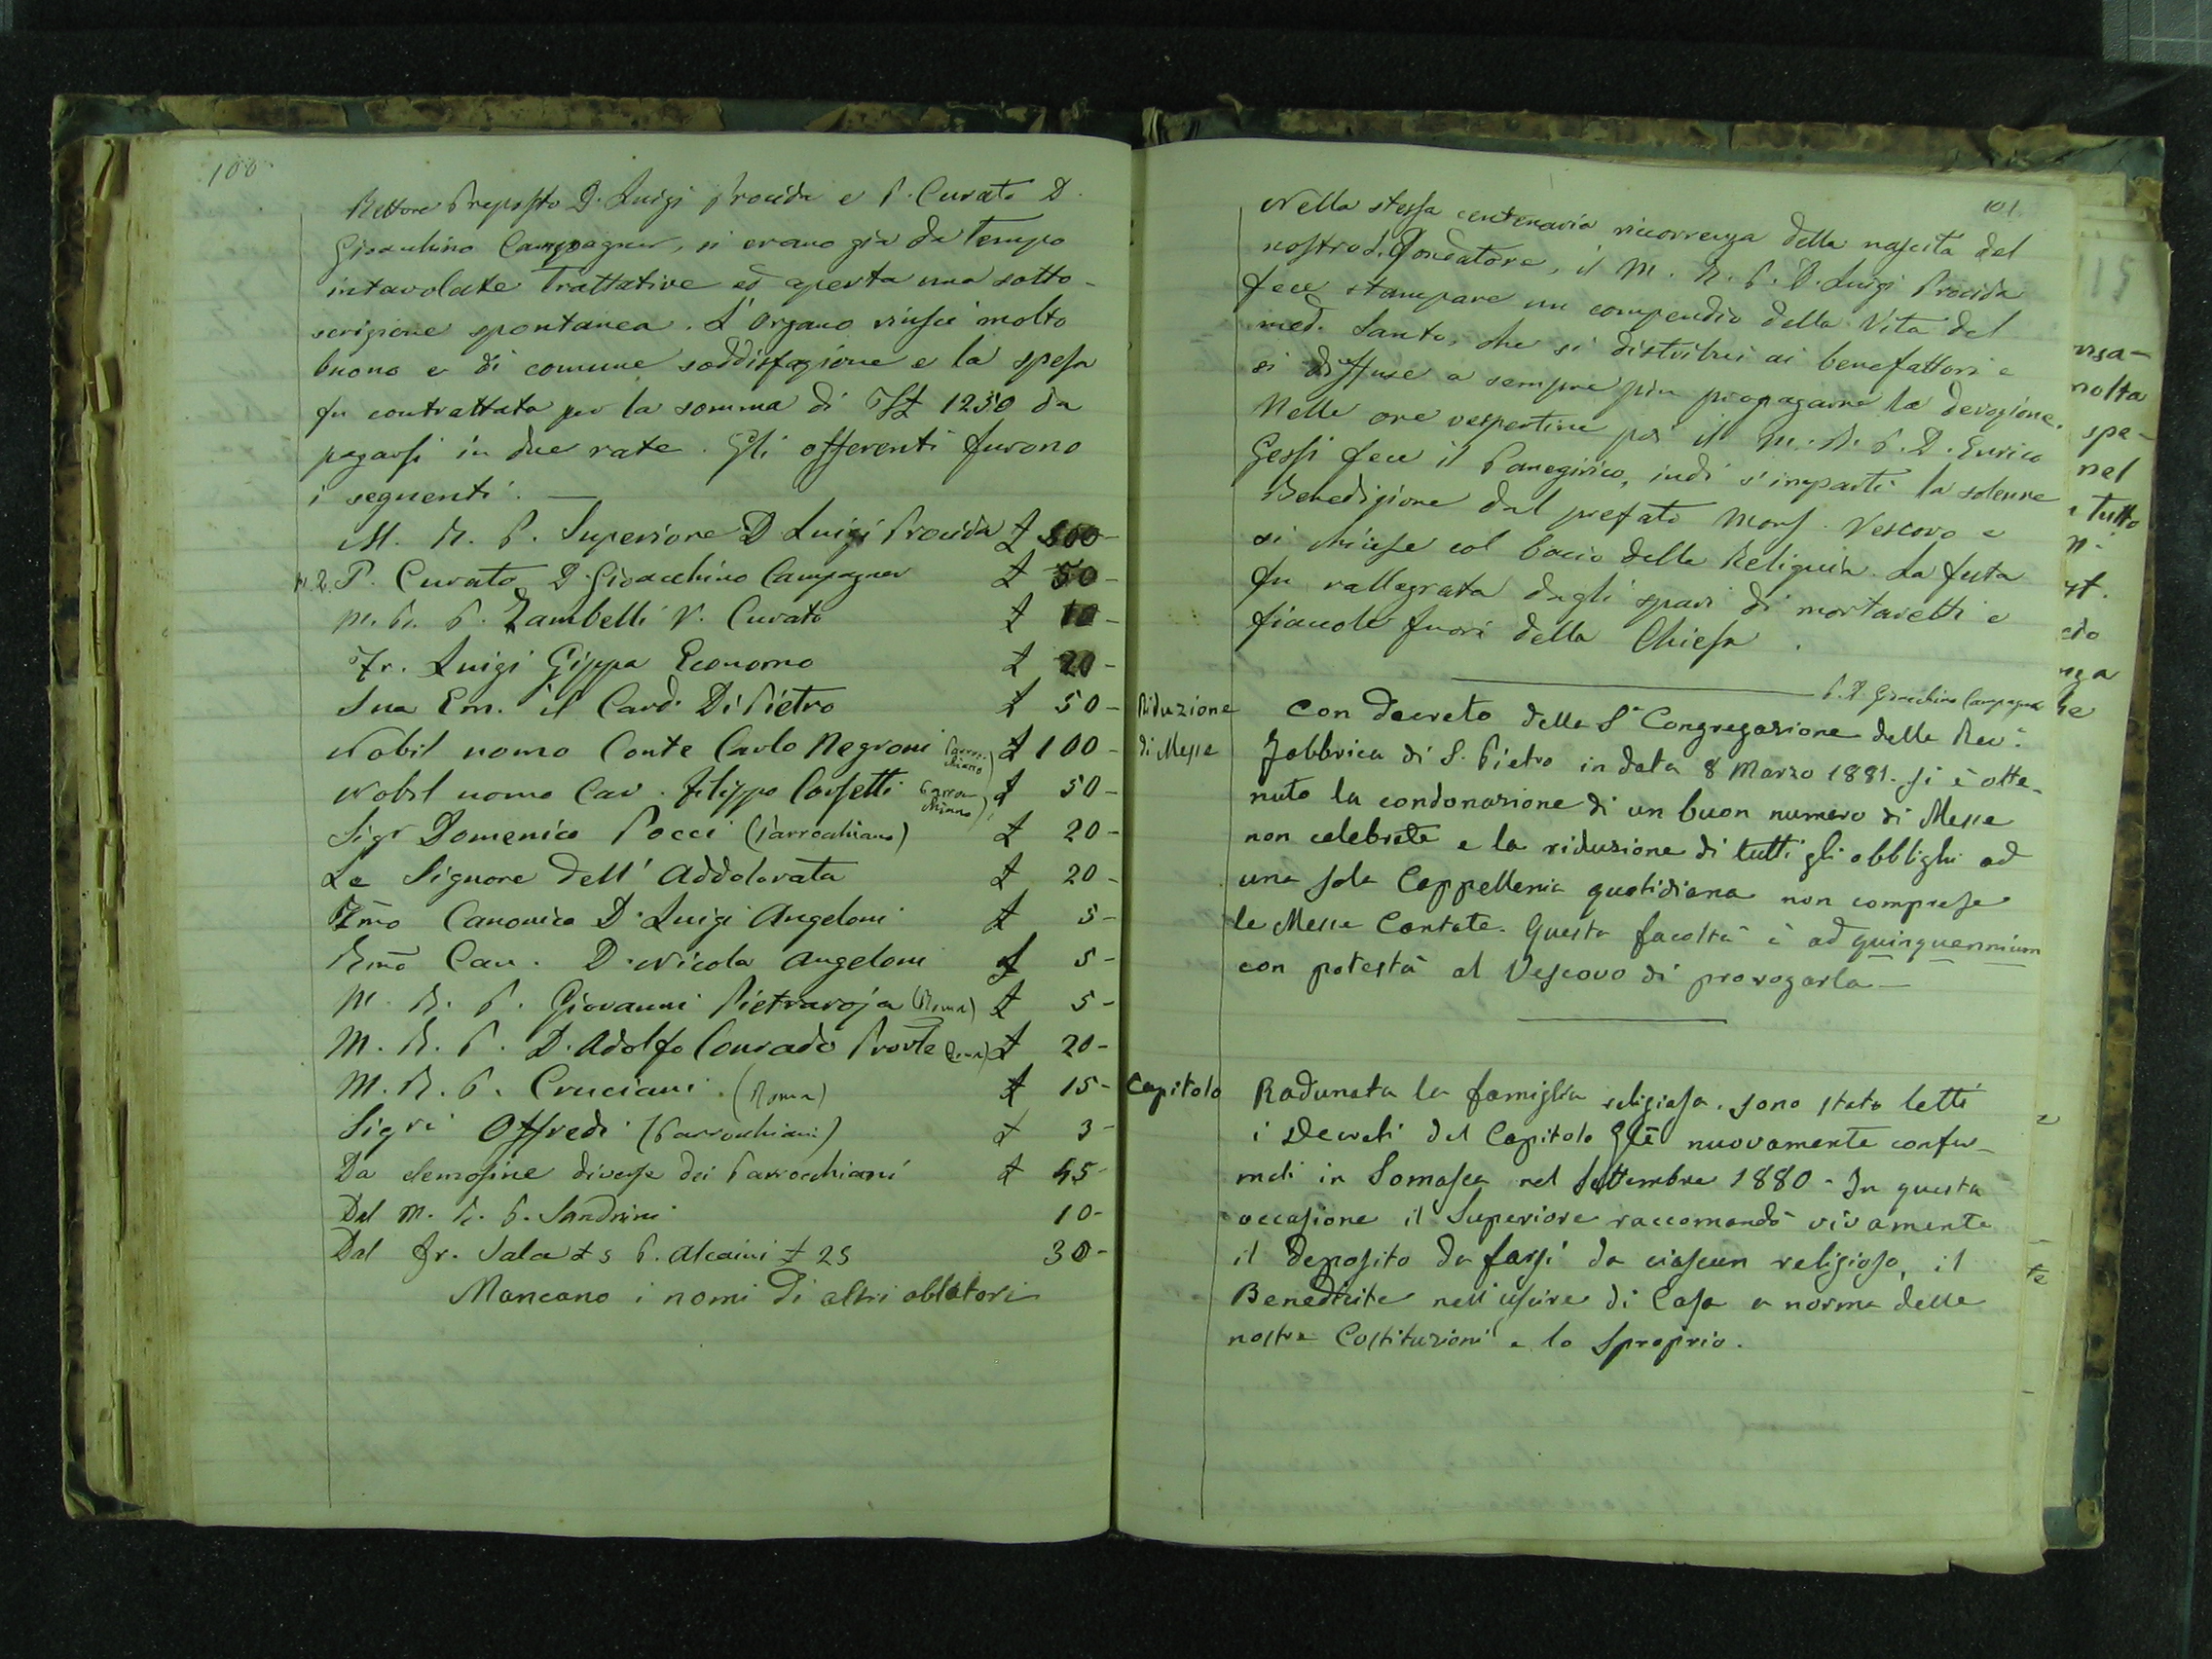 100
Rettore Preposto D. Luigi Procida e P. Curato D.
Gioachino Campagner, si erano già da tempo
intavolate trattative ed aperta una sotto-
scrizione spontanea. L'Organo riuscì molto
buono e di comune soddisfazione e la spesa
fu contrattata per la somma di It£ 1250 da
pagarsi in due rate. Gli offerenti furono
i seguenti. —
M. R. P. Superiore D Luigi Procida £ 500-
M.R. P. Curato D. Gioacchino Campagner £ 50-
M. R. P. Zambelli V. Curato £ 10-
Fr. Luigi Gippa Economo £ 20-
Sua Em. il Card. Di Pietro £ 50-
Nobil uomo Conte Carlo Negroni (Parroc-chiano) £ 100-
Nobil uomo Cav. Filippo Corsetti (Parroc-chiano) £ 50-
Sigr Domenico Pocci (Parrocchiano) £ 20-
Le Signore dell'Addolorata £ 20-
Illmo Canonico D. Luigi Angeloni £ 5-
Rmo Can. D. Nicola Angeloni £ 5-
M. R. P. Giovanni Pietraroja (Roma) £ 5-
M. R. P. D. Adolfo Conrado (Roma) £ 20-
M. R. P. Cruciani. (Roma) £ 15-
Sigri Offredi (Parrocchiani) £ 3-
Da elemosine diverse dei Parrocchiani £ 45-
Dal M. R. P. Sandrini 10-
Dal Fr. Sala £ 5 P. Alcaini £ 25 30-
Mancano i nomi di altri oblatori
101
Nella stessa centenaria ricorrenza della nascita del
nostro S. Fondatore, il M. R. P. D. Luigi Procida
fece stampare un compendio della Vita del
med. Santo, che si distribuì ai benefattori e
si diffuse a sempre più propagarne la devozione.
Nelle ore vespertine poi il M. R. P. D. Enrico
Gessi fece il Panegirico, indi s'impartì la solenne
Benedizione dal prefato Mons. Vescovo e
si chiuse col bacio della Reliquia. La festa
fu rallegrata dagli spari di mortaretti e
fiaccole fuori della Chiesa.
P. D. Gioacchino Campagner
Riduzione
di Messe
Con decreto della Sa Congregazione della Rev.
Fabbrica di S. Pietro in data 8 Marzo 1881. si è otte-
nuto la condonazione di un buon numero di Messe
non celebrate e la riduzione di tutti gli obblighi ad
una sola Cappellania quotidiana non comprese
le Messe Cantate. Questa facoltà è ad quinquennium
con potestà al Vescovo di prorogarla —
Capitolo
Radunata la famiglia religiosa, sono stati letti
i Decreti del Capitolo Gle nuovamente confer-
mati in Somasca nel Settembre 1880 - In questa
occasione il Superiore raccomandò vivamente
il deposito da farsi da ciascun religioso, il
Benedicite nell'uscire di Casa a norma delle
nostre Costituzioni e lo Sproprio.
15
visa-
molta
spe-
nel
tutto